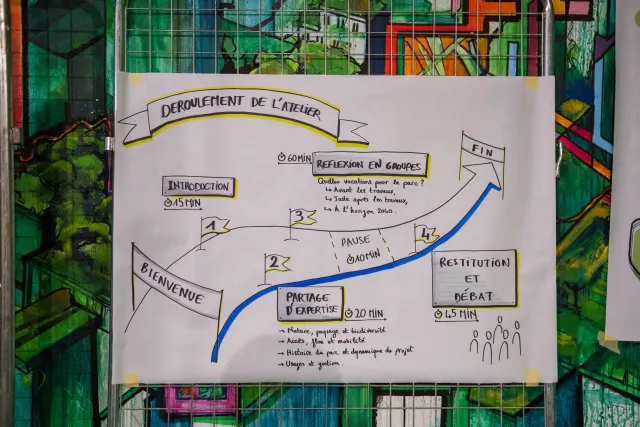 DEROULEMENT DE L'ATELIER
BIENVENUE
1
INTRODUCTION
15 MIN
2
PARTAGE
D'EXPERTISE
20 MIN
→ Nature, paysage et biodiversité
→ Accès, flux et mobilité
→ Histoire du parc et dynamique du projet
→ Usages et gestion.
3
60 MIN
REFLEXION EN GROUPES
Quelles vocations pour le parc ?
↳ Avant les travaux,
↳ Juste après les travaux,
↳ À l'horizon 2040.
PAUSE
10 MIN
4
RESTITUTION
ET
DÉBAT
45 MIN
FIN